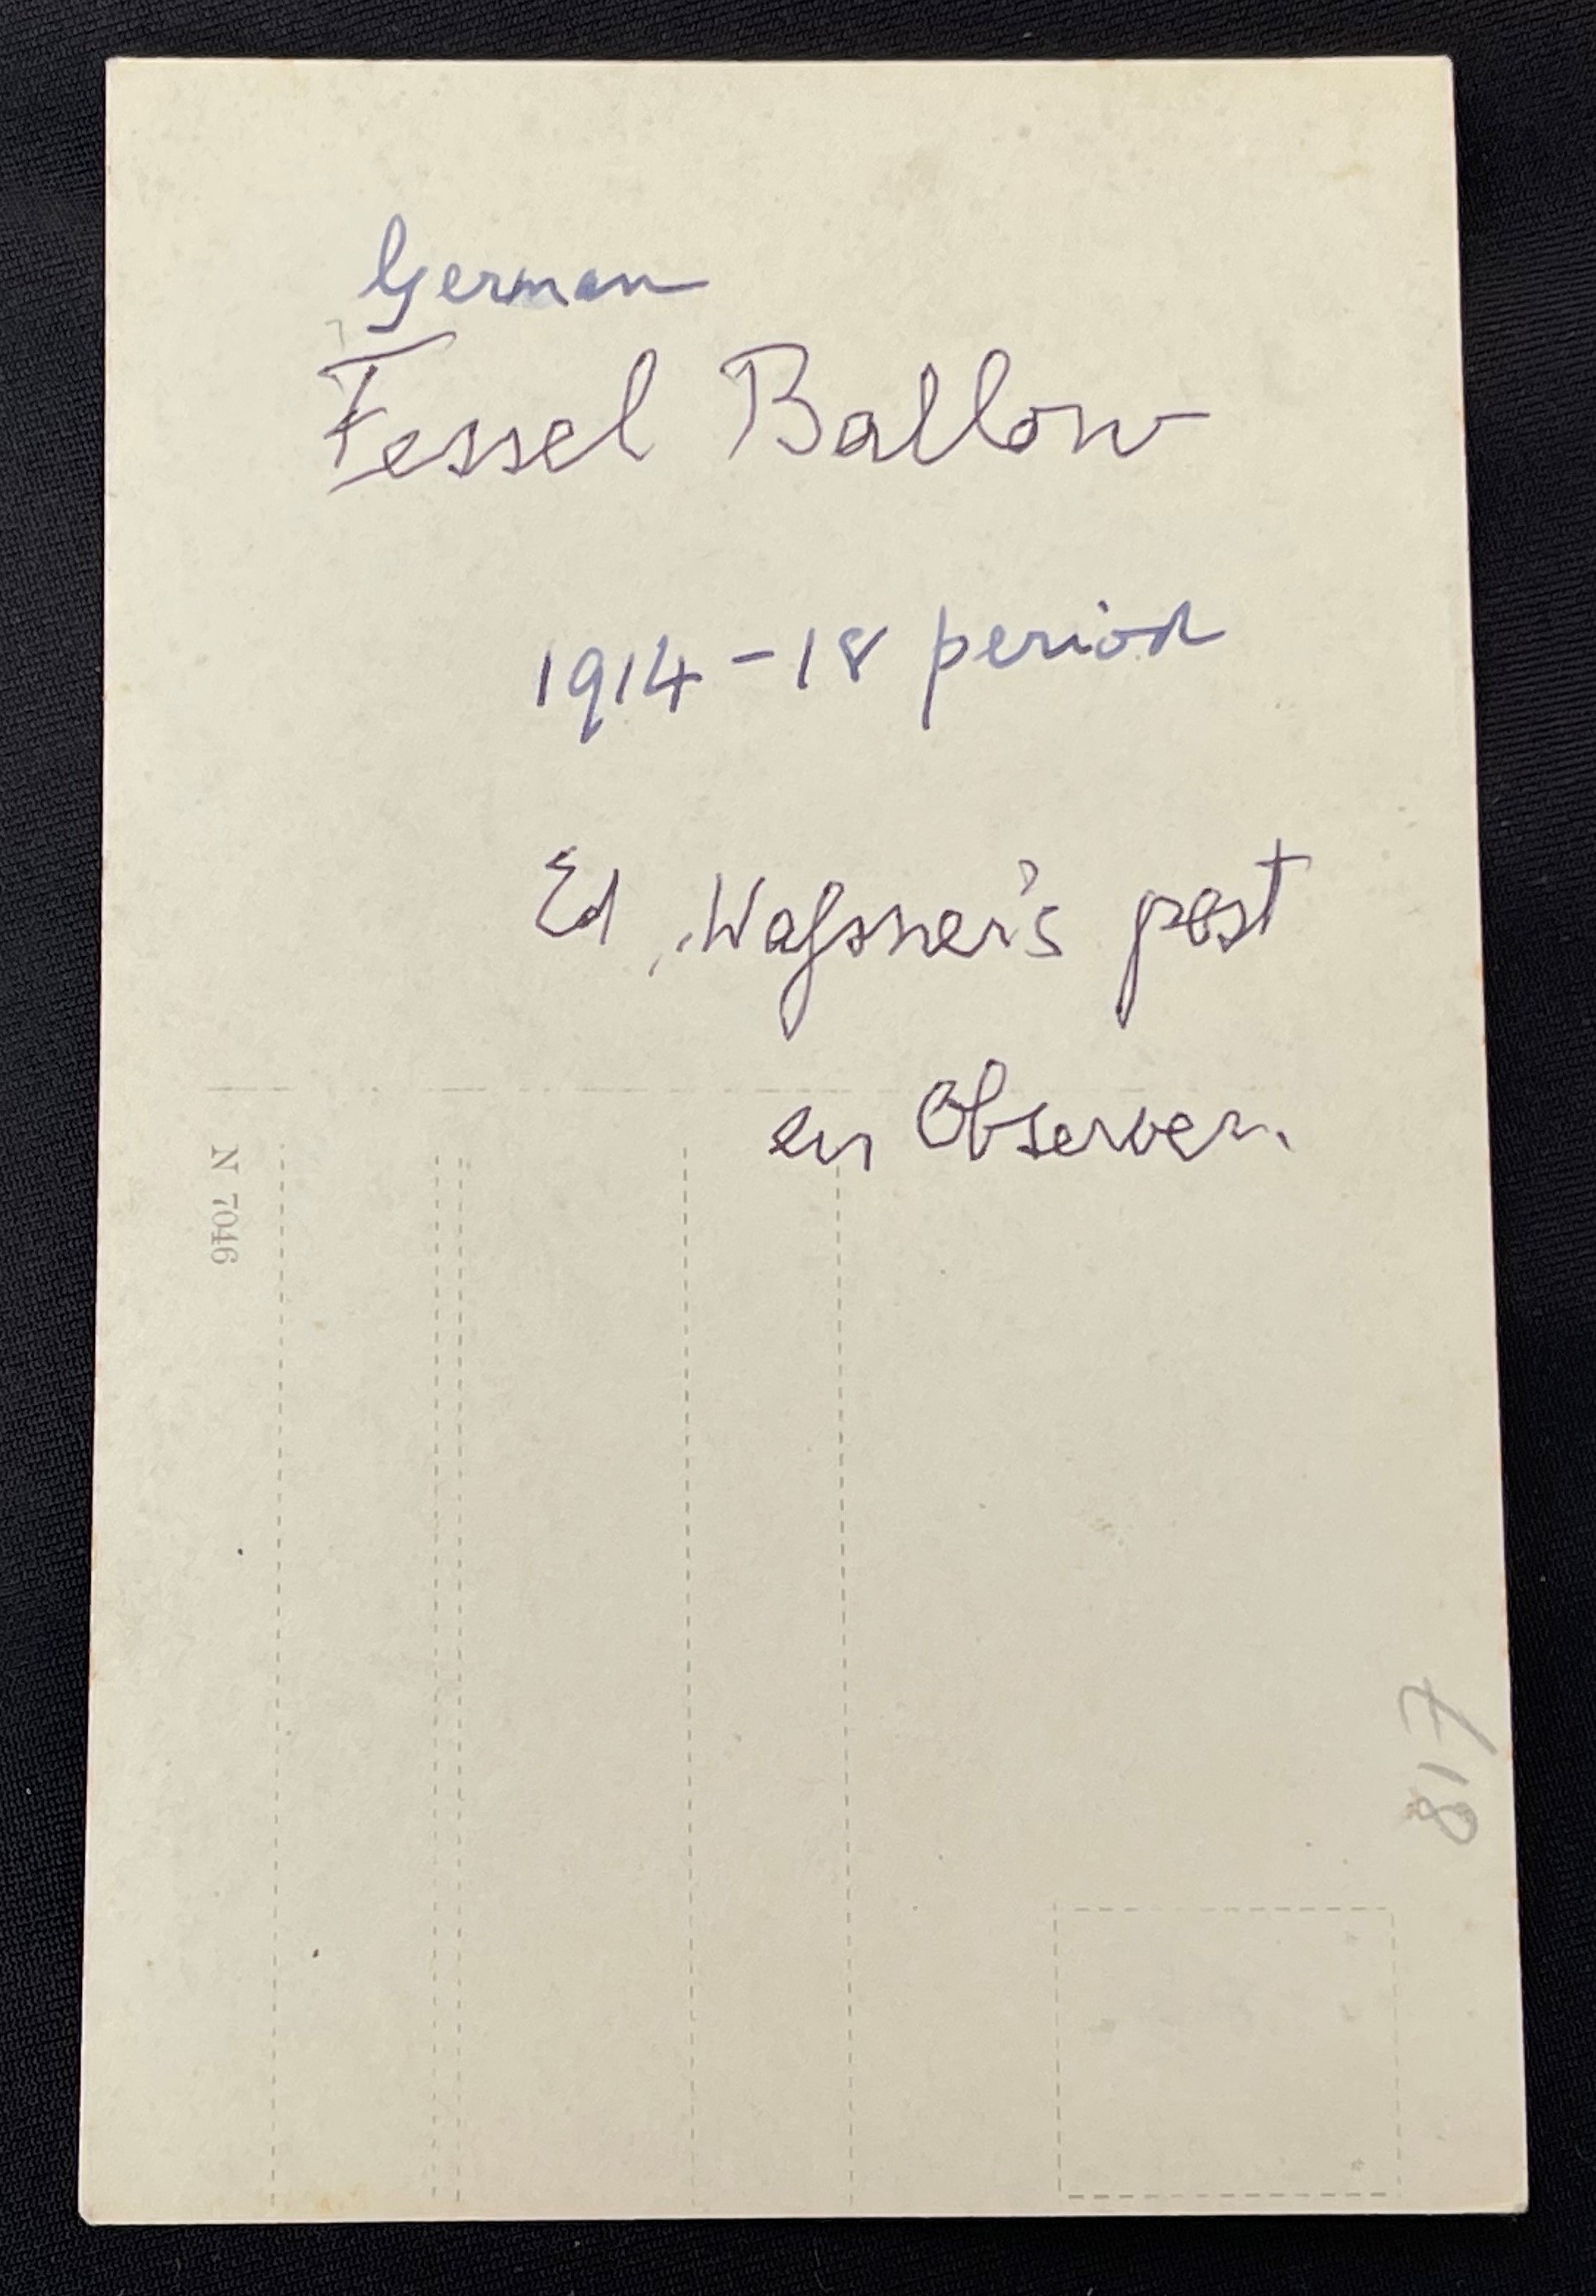 German
Fessel Ballon
1914-18 period
Ed. Waßner's post
Observer.
N 7046
817